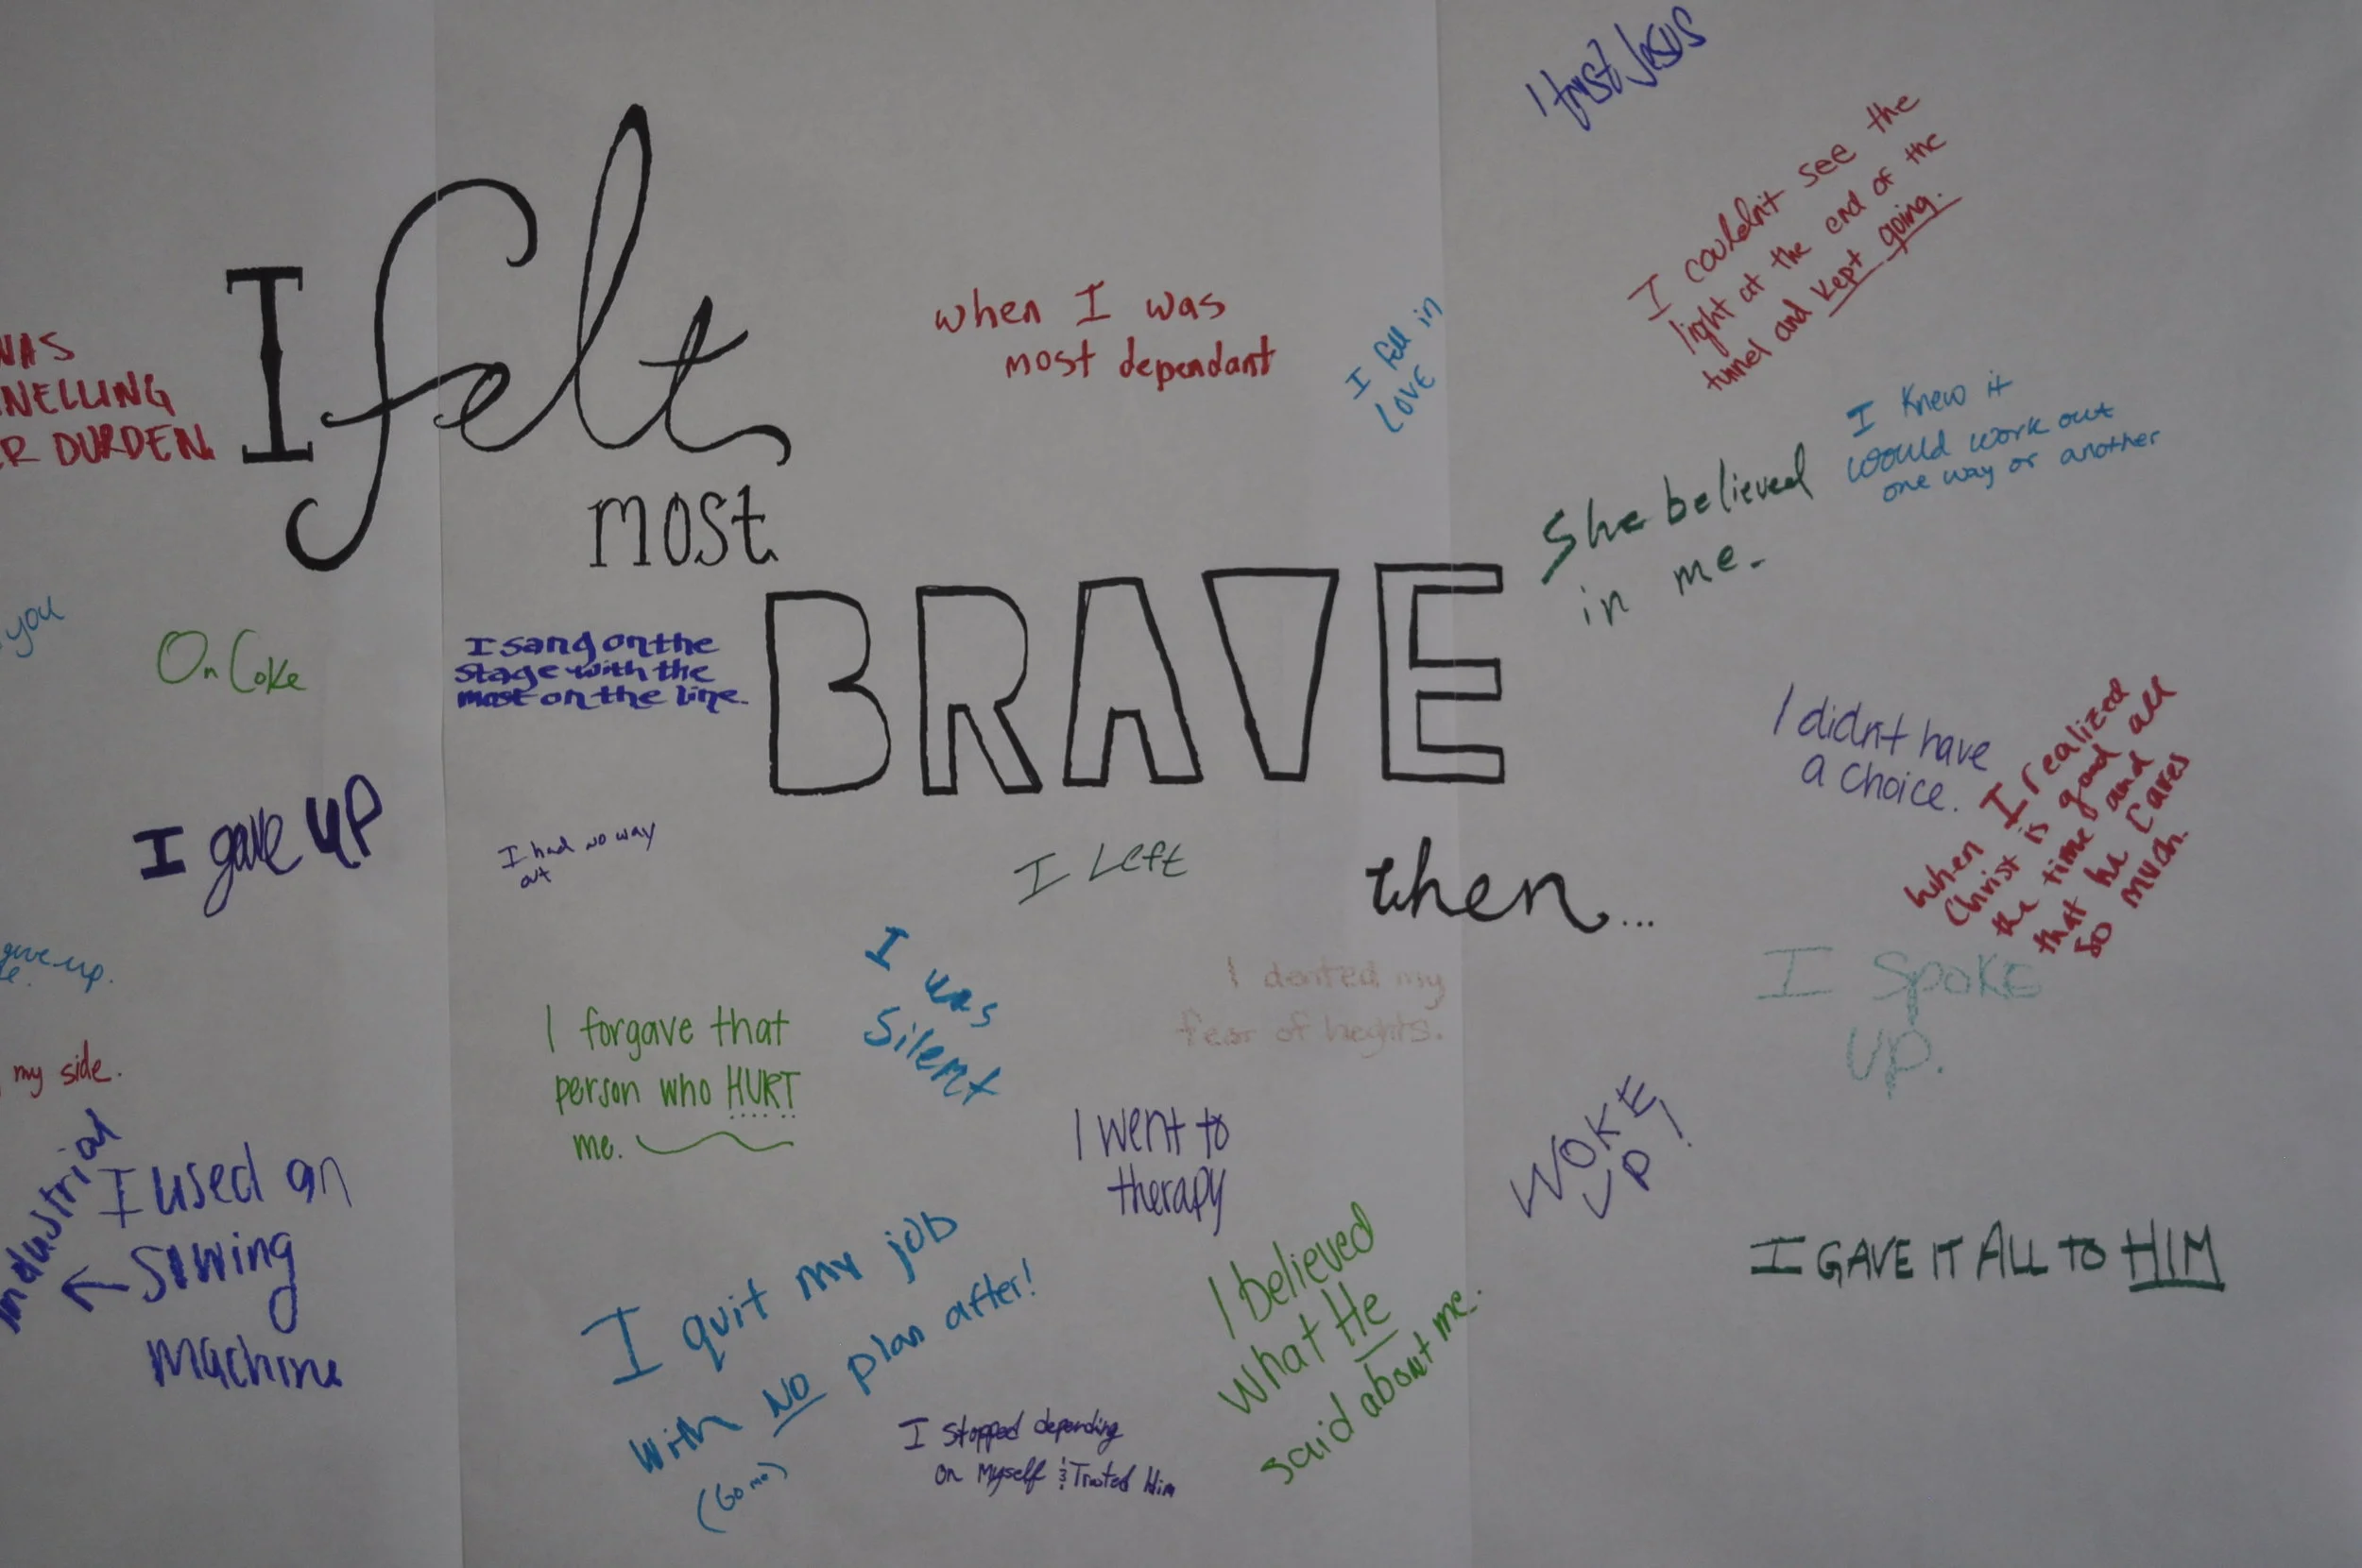 I felt
most
BRAVE
when...
I trust Jesus
I couldn't see the
light at the end of the
tunnel and kept going.
when I was
most dependant
I fell in
LOVE
WAS
NNELLING
ER DURDEN.
I knew it
would work out
one way or another
She believed
in me.
you
On Coke
I sang on the
stage with the
most on the line.
I didn't have
a choice.
when I realized
Christ is good all
the time and
that he cares
so much.
I gave up
I had no way
out
I Left
give up.
I forgave that
person who HURT
me.
I was
Silent
I denied my
fear of heights.
I SPOKE
UP.
my side.
I went to
therapy
WOKE
UP!
industrial
I used an
Siwing
Machine
I quit my job
with NO plan after!
(Go me)
I believed
what He
said about me.
I GAVE IT ALL TO HIM
I stopped depending
on Myself & Trusted Him